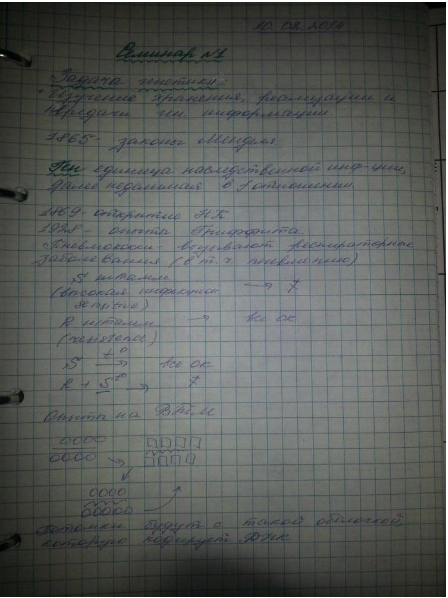 10.02.2014
Семинар №1
Задача генетики:
Изучение хранения, реализации и
передачи ген информации
1865- законы Менделя.
Ген единица наследственной инф-ции,
далее неделимая в отношении
1869- открытие НК
1928- опыты Гриффита
Пневмококки- вызывают респираторные
заболевания (в т.ч. пневмонию)
S штамм →
(высокая инфекцион
R штамм → все ок
S t° → все ок
R + S t° →
Опыты на ВТМ
Потомки будут с такой оболочкой,
которую кодирует РНК